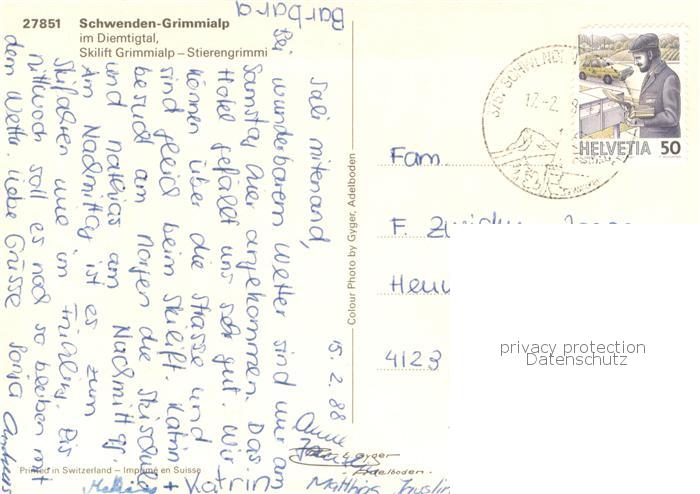 27851 Schwenden-Grimmialp
im Diemtigtal,
Skilift Grimmialp – Stierengrimmi
15. 2. 88
Sali mitenand,
Bei wunderbarem Wetter sind wir am
Samstag hier angekommen. Das
Hotel gefällt uns sehr gut. Wir
können über die Strasse und
sind gleich beim Skilift. Katrin
besucht am Morgen die Skischule
und Mathias am Nachmittag.
Am Nachmittag ist es zum
Skifahren wie im Frühling. Bis
mittwoch soll es noch so bleiben mit
dem Wetter. Liebe Grüsse Sonja Andreas
Barbara
Mathias + Katrin
Anne
Matthias
Colour Photo by Gyger, Adelboden
E. Gyger
Adelboden
Printed in Switzerland – Imprimé en Suisse
SCHWENDEN
12.-2.
HELVETIA 50
Fam.
F.
4123
privacy protection
Datenschutz